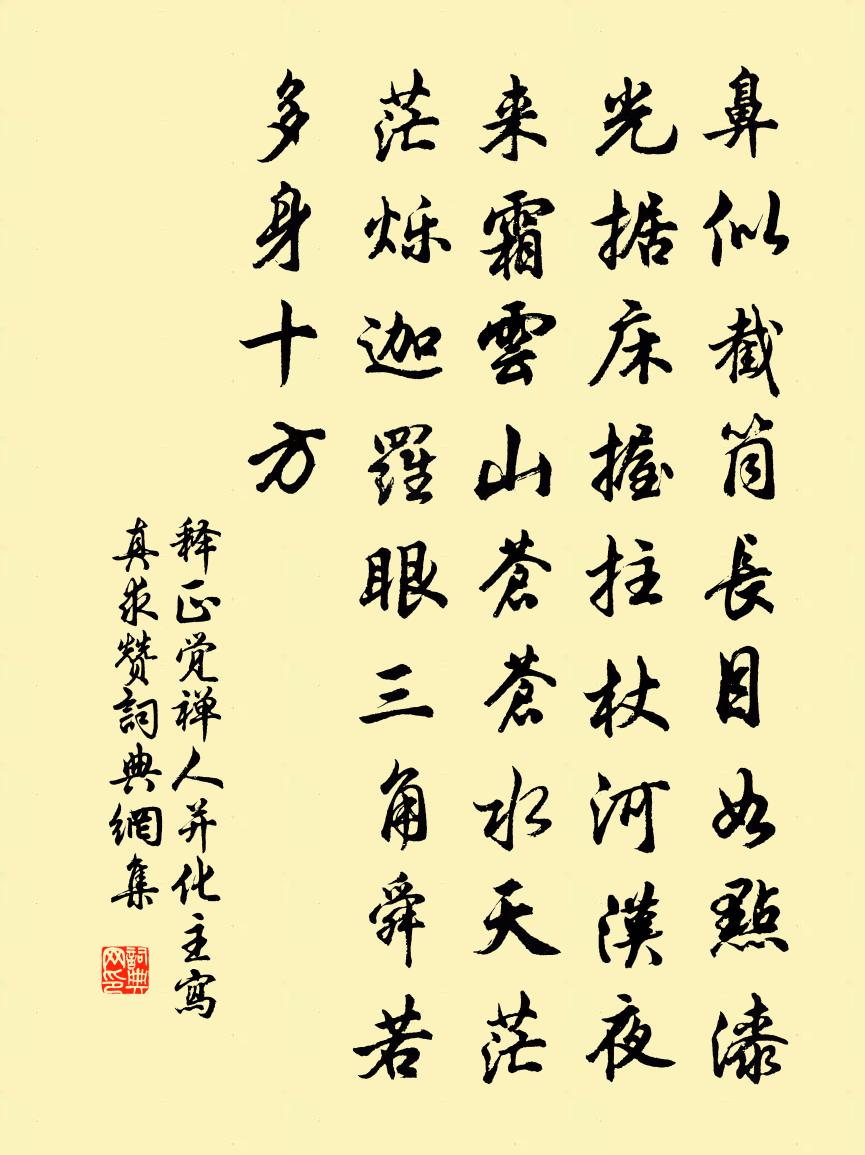 鼻似截筒長目如點漆
光据床握拄杖河漢夜
来霜雲山蒼蒼水天茫
茫烁迦羅眼三角舜若
多身十方
释正觉禅人并化主寫
真求赞詞典網集
詞典网印